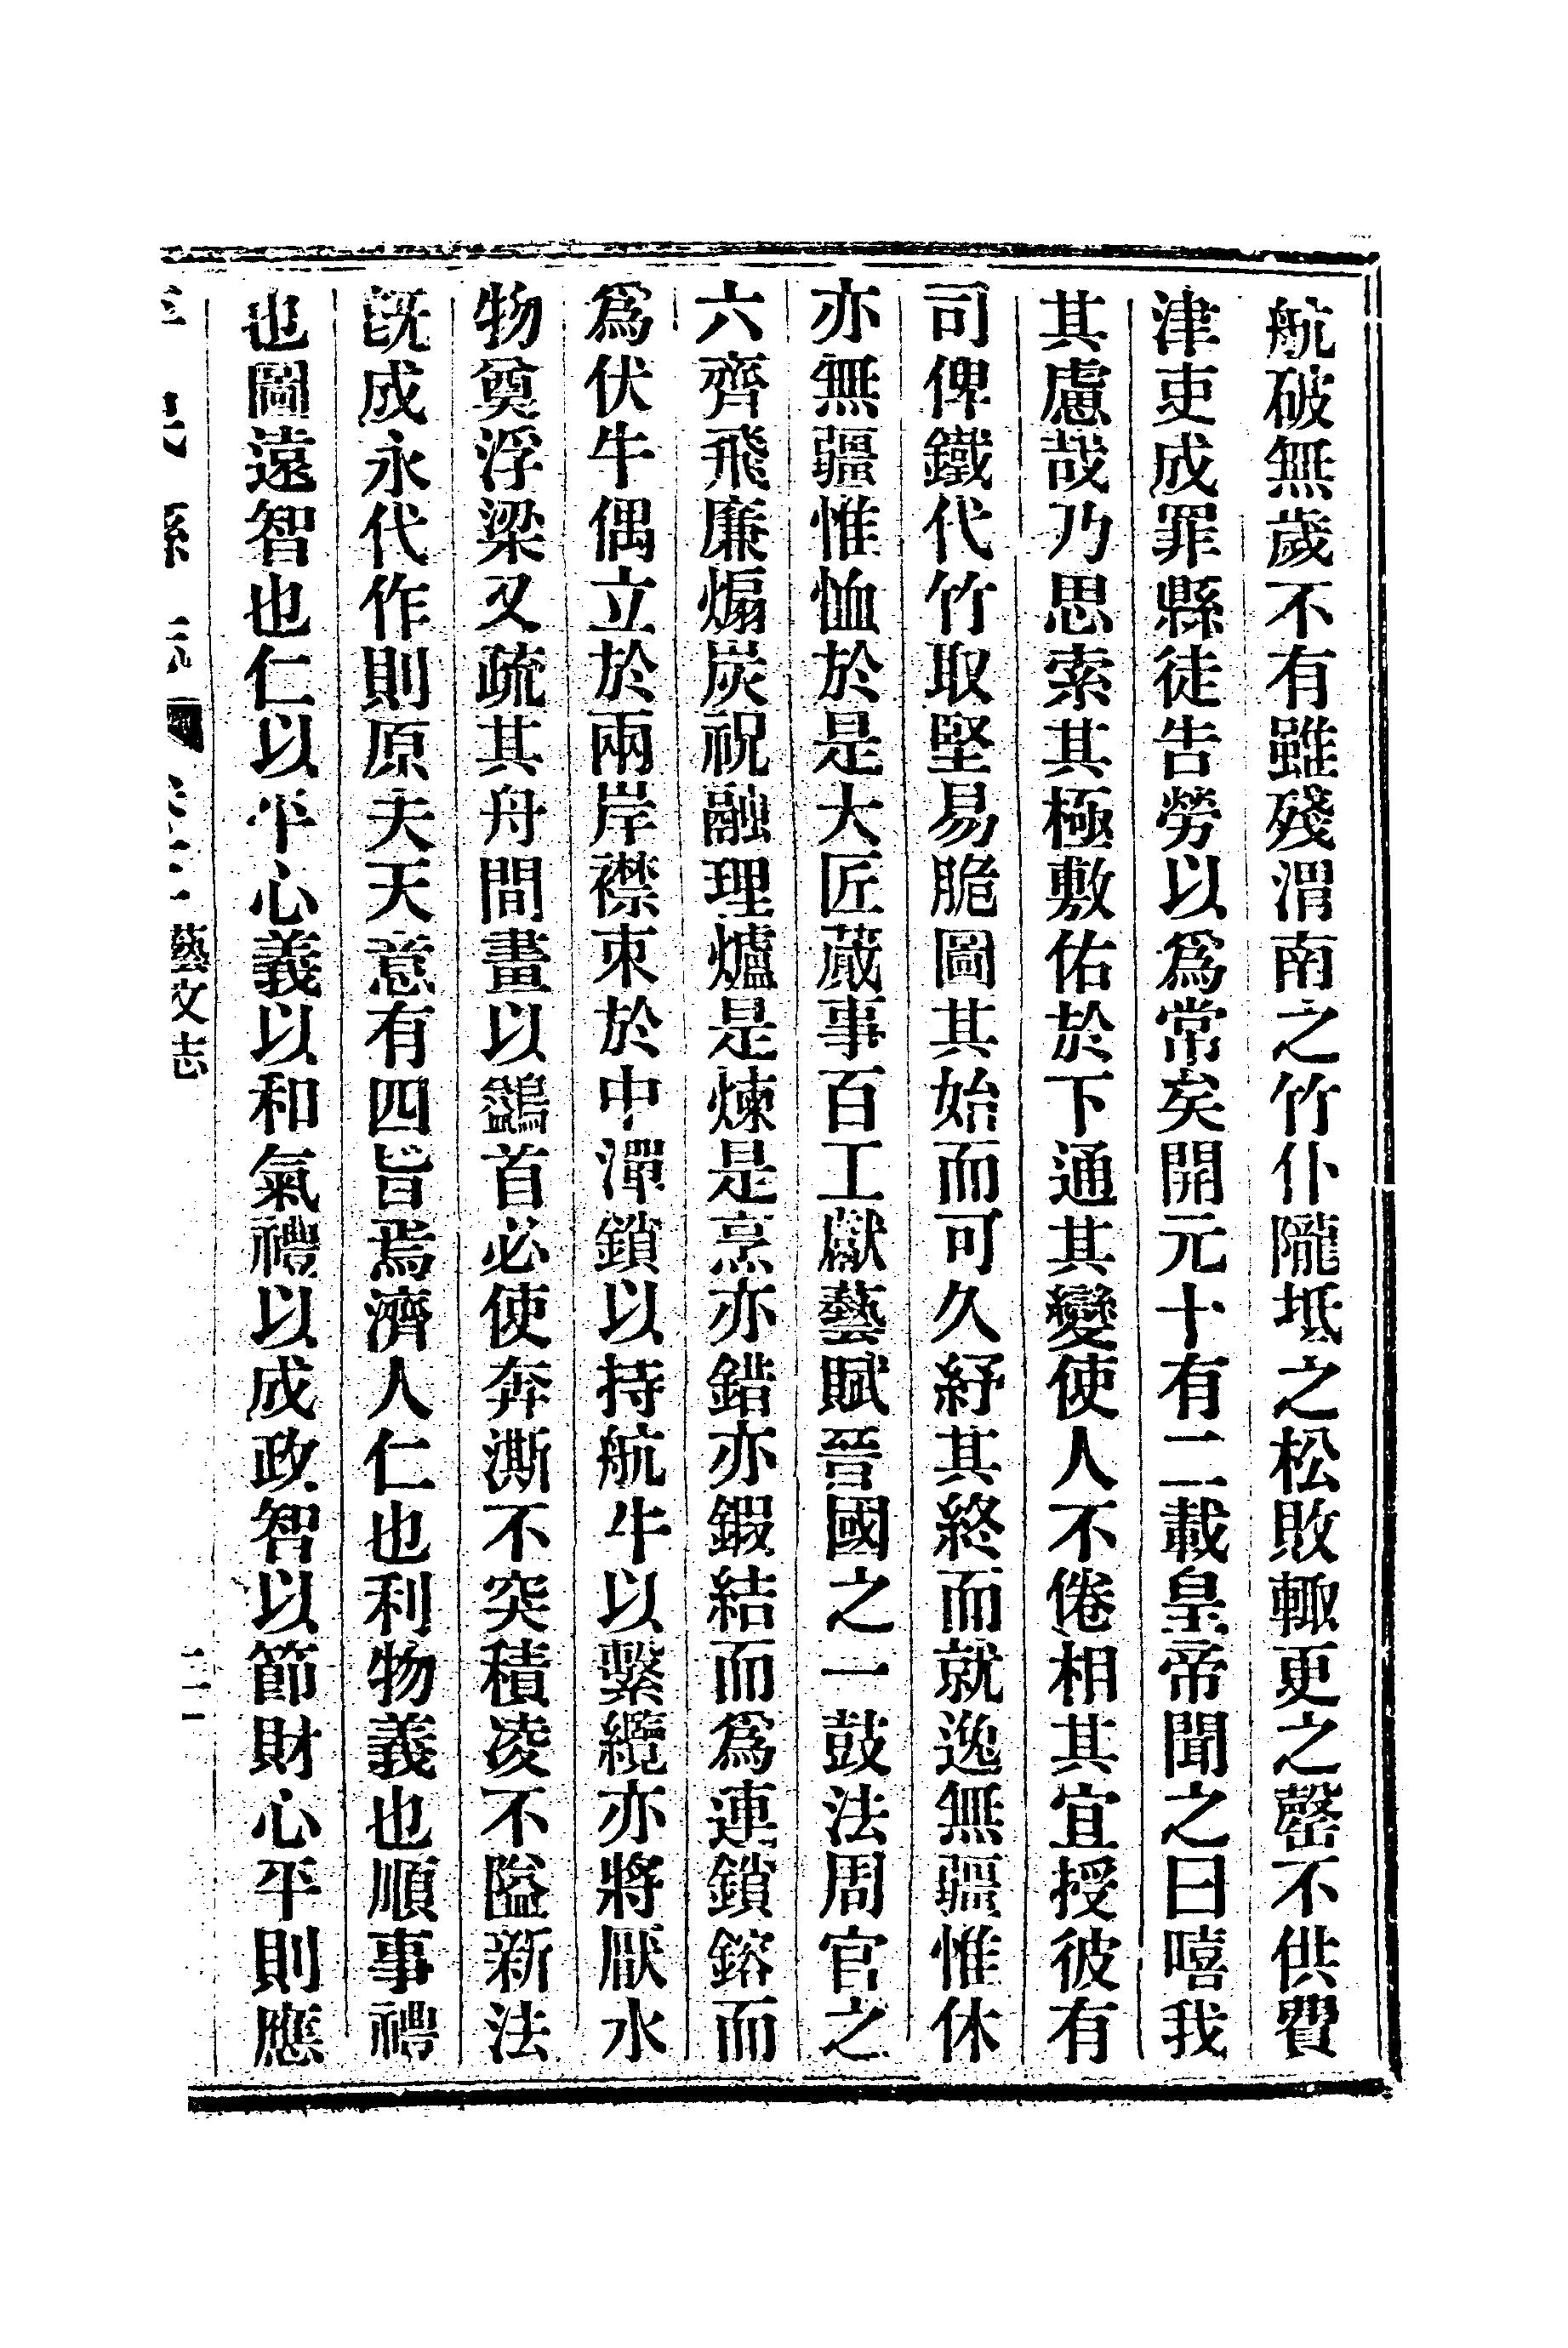 航破無歲不有雖殘渭南之竹仆隴坻之松敗輙更之罄不供費
津吏成罪縣徒告勞以爲常矣開元十有二載皇帝聞之曰嘻我
其慮哉乃思索其極敷佑於下通其變使人不倦相其宜授彼有
司俾鐵代竹取堅易脆圖其始而可久紓其終而就逸無疆惟休
亦無疆惟恤於是大匠蕆事百工獻藝賦晉國之一鼓法周官之
六齊飛廉煽炭祝融理爐是煉是烹亦錯亦鍜結而爲連鎖鎔而
爲伏牛偶立於兩岸襟束於中潬鎖以持航牛以繫纜亦將厭水
物奠浮梁又疏其舟間畫以鷁首必使奔澌不突積凌不隘新法
旣成永代作則原夫天意有四旨焉濟人仁也利物義也順事禮
也圖遠智也仁以平心義以和氣禮以成政智以節財心平則應
藝文志